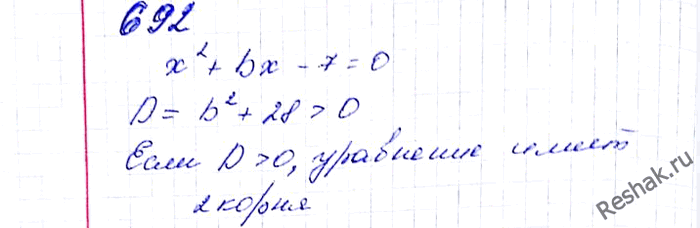 692
x² + bx - 7 = 0
D = b² + 28 > 0
Если D > 0, уравнение имеет
2 корня
Reshak.ru